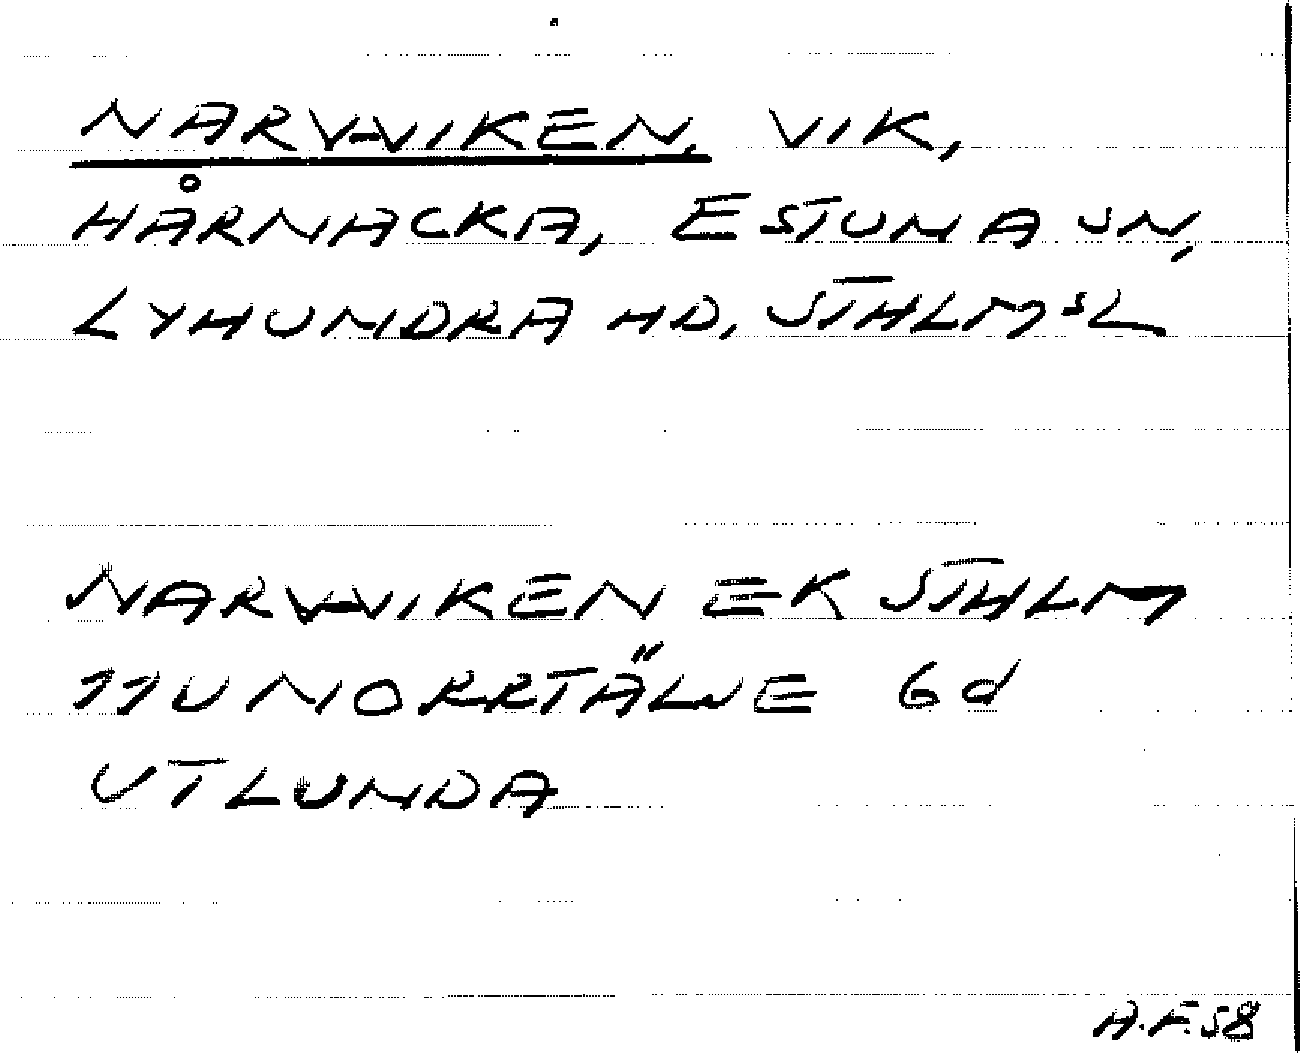 NARV-VIKEN, VIK,
HÅRNACKA, ESTUNA SN,
LYHUNDRA HD, STHLMSL
NARV-VIKEN EK STHLM
11U NORRTÄLJE 6d
UTLUNDA
A.F.58